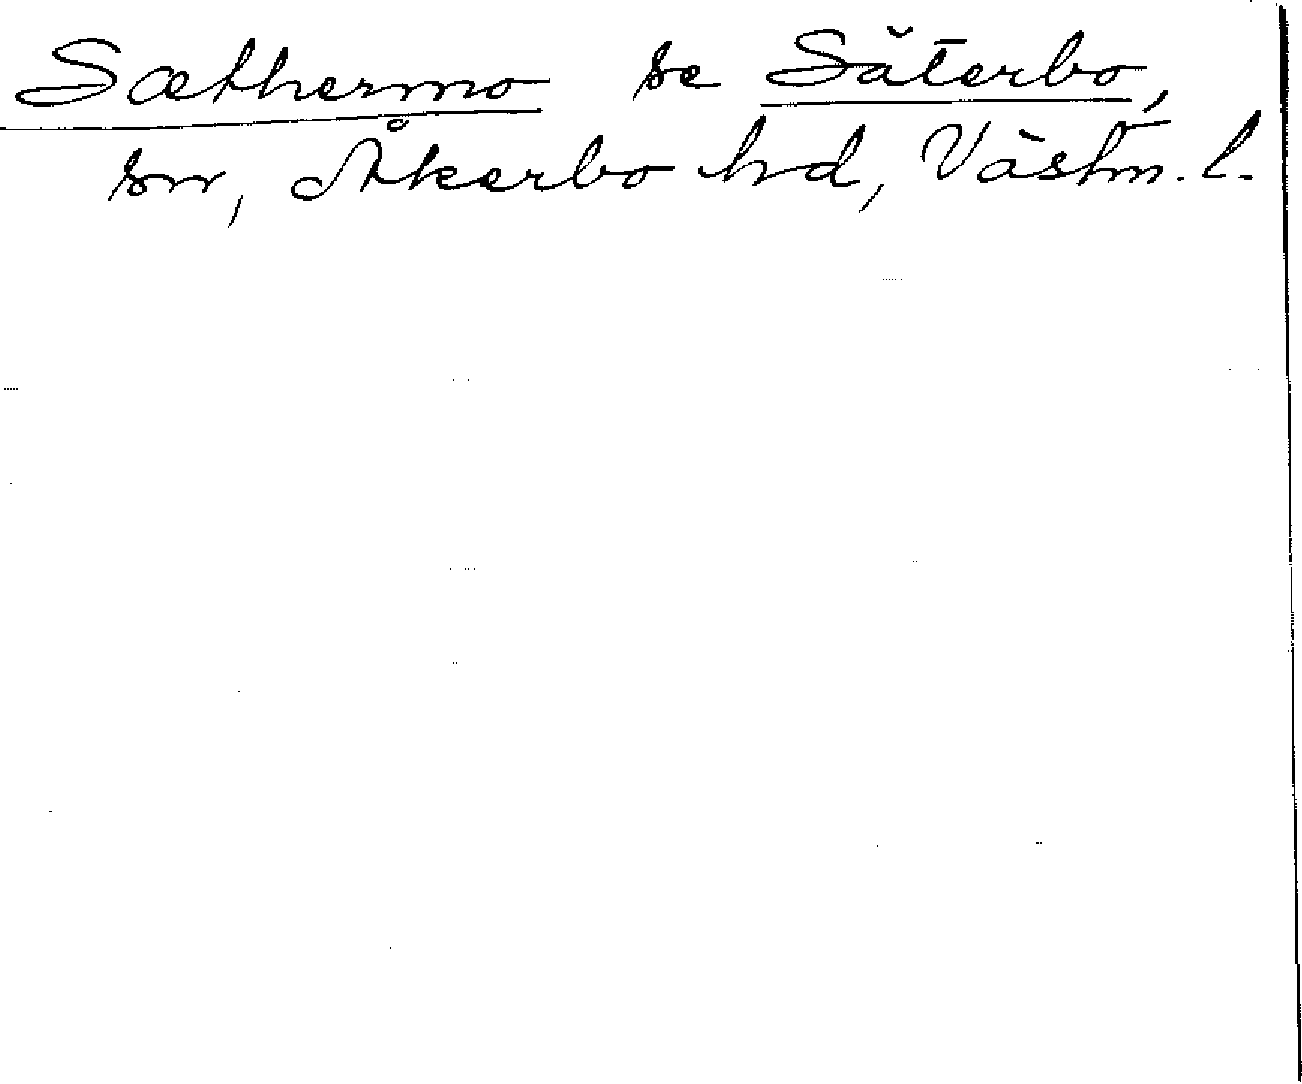 Sæthermo se Säterbo,
sn, Åkerbo hd, Västm. l.